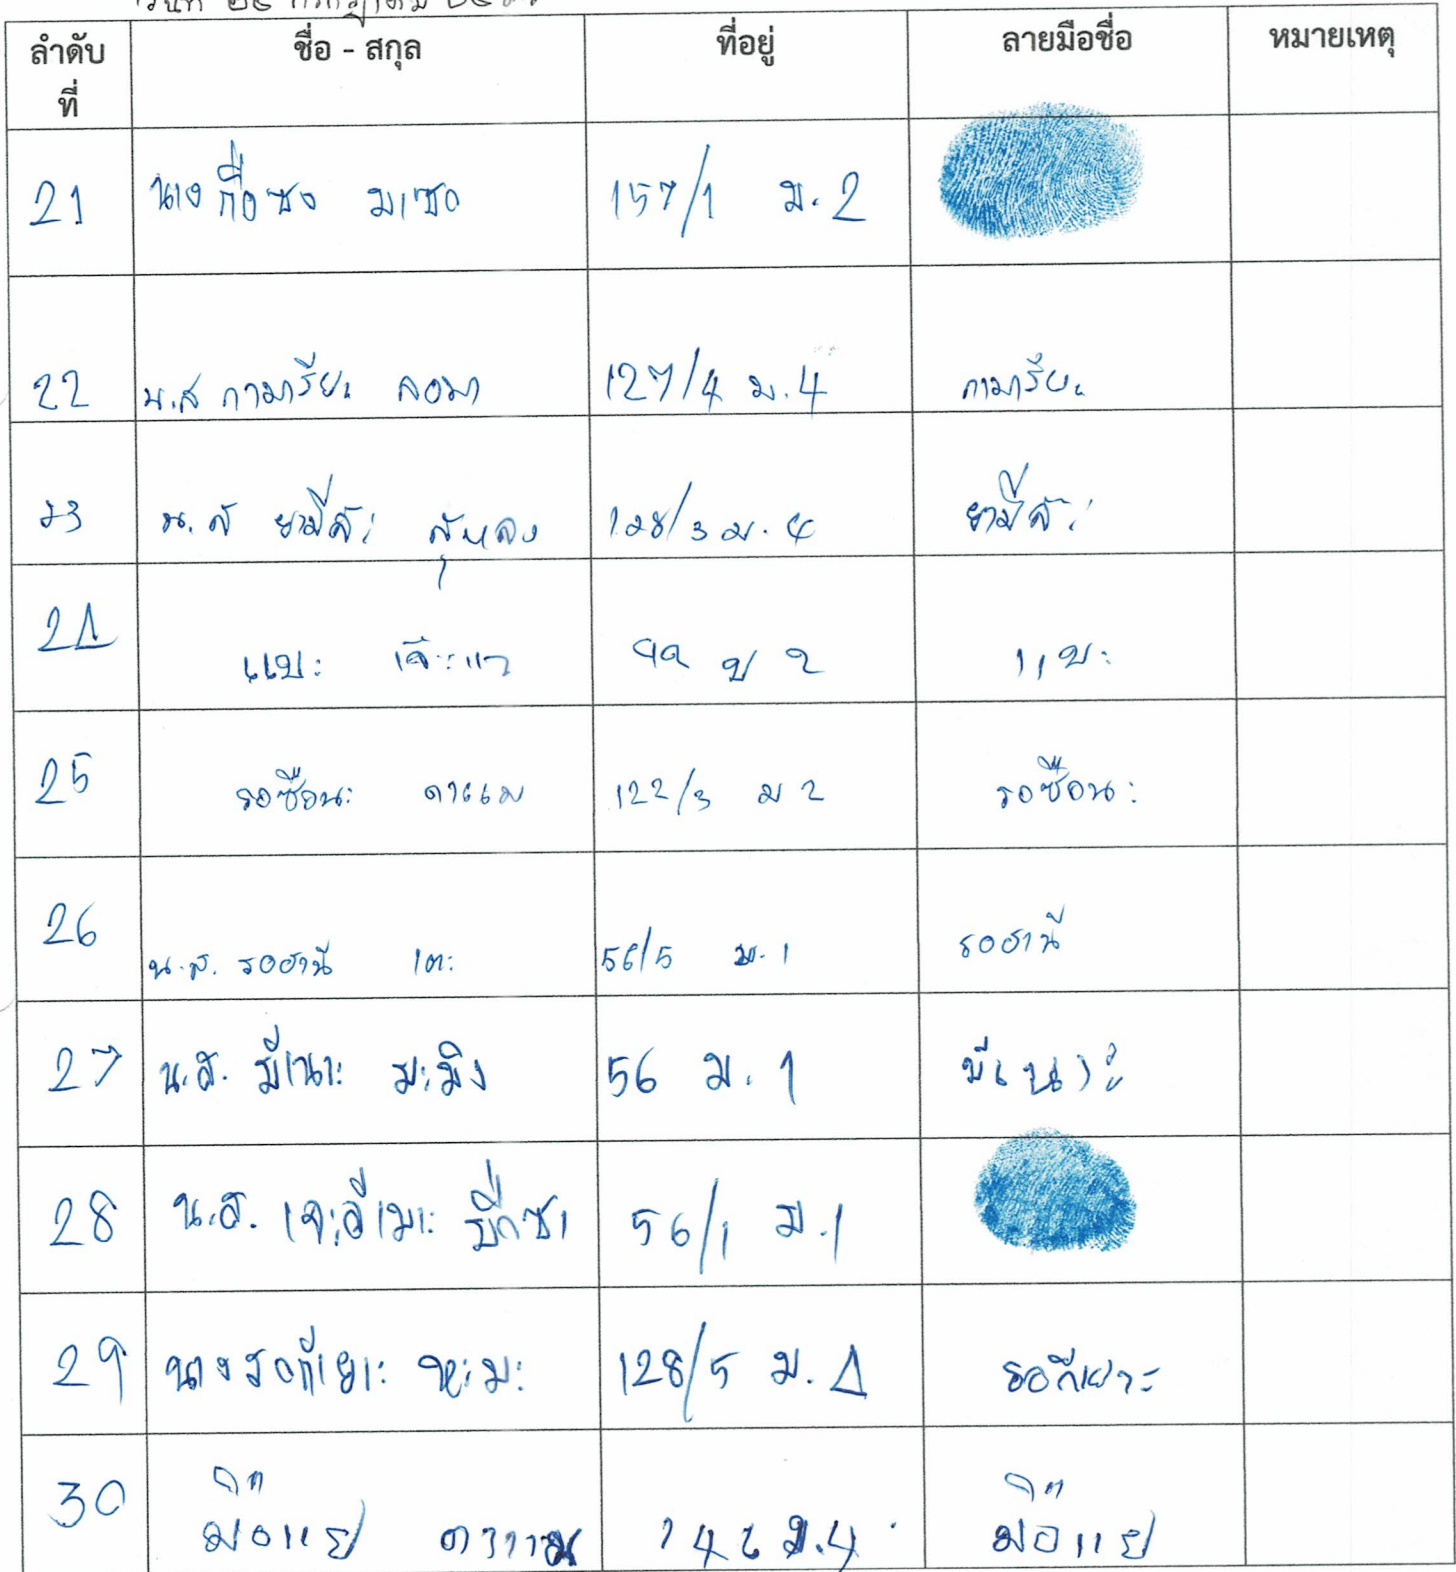 วันที่ ๒๔ กรกฎาคม
ลำดับ ชื่อ - สกุล ที่อยู่ ลายมือชื่อ หมายเหตุ
ที่
21 นาง กื่อซง มะซอ 157/1 ม.2
22 น.ส การมารียะ ลอมา 127/4 ม.4 การมารียะ
23 น.ส ยามีล๊ะ สุหลง 128/3 ม.4 ยามีล๊ะ
24 แมะ เจ๊ะแว ม 2 แมะ
25 รอซือนะ ดาแม 122/3 ม 2 รอซือนะ
26 น.ส. รอฮานี เตะ 56/5 ม.1 รอฮานี
27 น.ส. มีเนาะ มะมิง 56 ม.1 มีเนาะ
28 น.ส. เจะฮีเมาะ บือซา 56/1 ม.1
29 นางรอกีเยาะ หะมะ 128/5 ม.4 รอกีเยาะ
30 มือแย 142 ม.4 มือแย